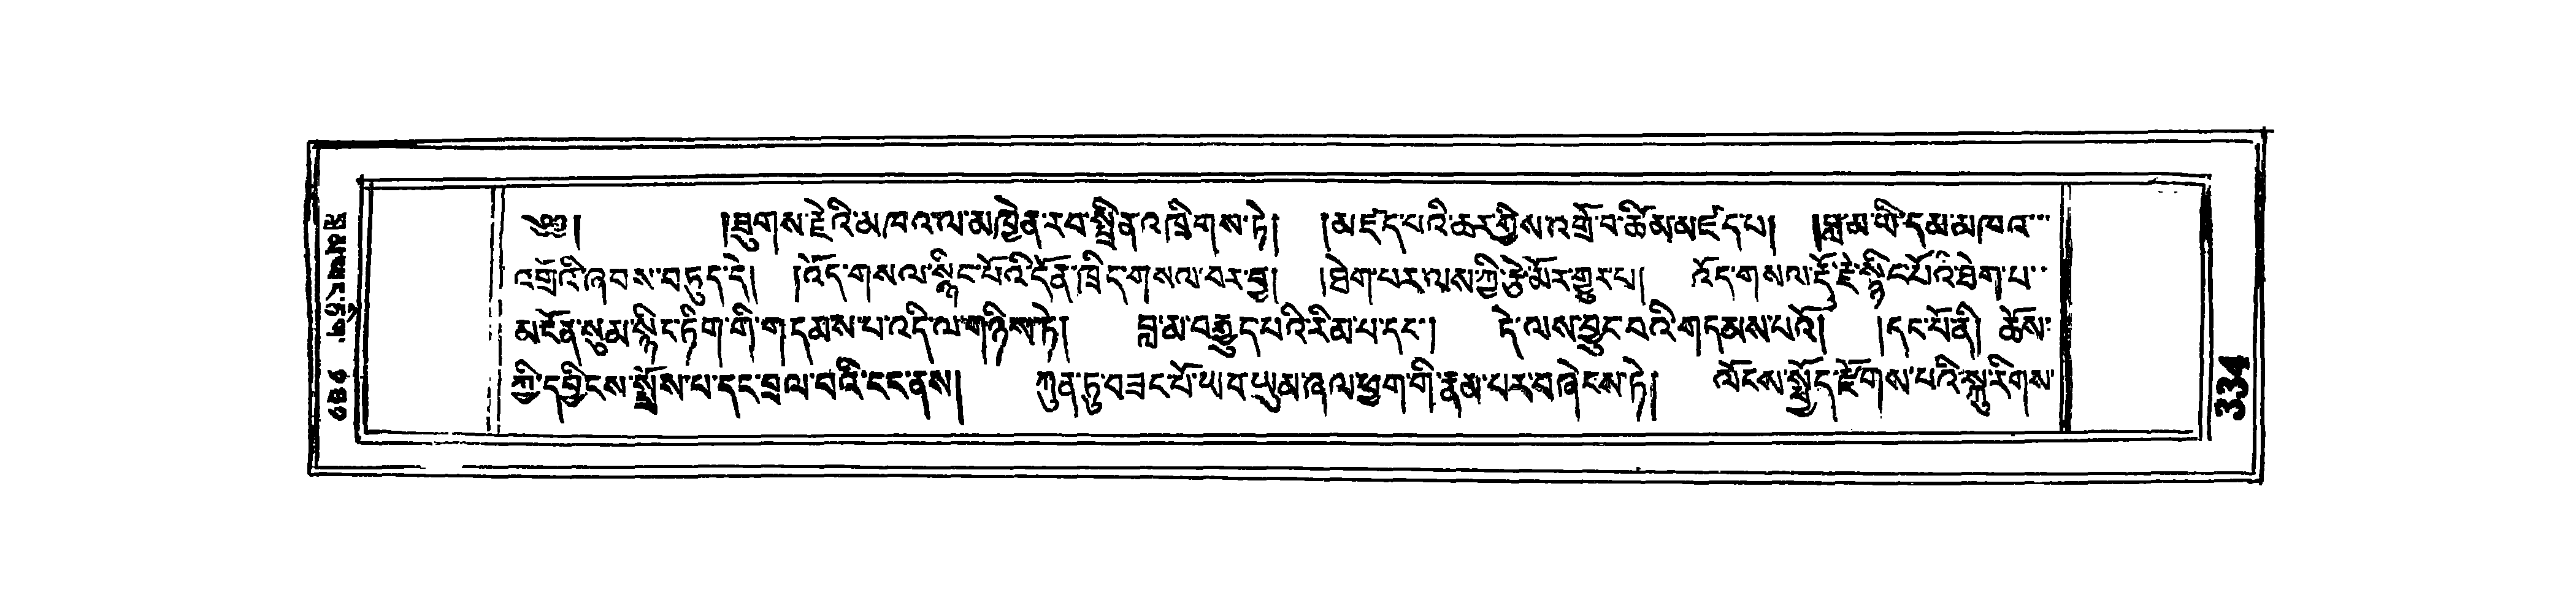 ༄༅། །ཐུགས་རྗེའི་མཁའ་ལ་མཁྱེན་རབ་སྤྲིན་འཁྲིགས་ཏེ། །མཛད་པའི་ཆར་གྱིས་འགྲོ་བ་ཚིམ་མཛད་པ། །བླ་མ་ཡི་དམ་མཁའ་
འགྲོའི་ཞབས་བཏུད་དེ། །འོད་གསལ་སྙིང་པོའི་དོན་ཁྲིད་གསལ་བར་བྱ། །ཐེག་པར་ལས་ཀྱི་རྩེ་མོར་གྱུར་པ། འོད་གསལ་རྡོ་རྗེ་སྙིང་པོའི་ཐེག་པ་
མངོན་སུམ་སྙིང་ཏིག་གི་གདམས་པ་འདི་ལ་གཉིས་ཏེ། བླ་མ་བརྒྱུད་པའི་རིམ་པ་དང་། དེ་ལས་བྱུང་བའི་གདམས་པའོ། །དང་པོ་ནི། ཆོས་
ཀྱི་དབྱིངས་སྤྲོས་པ་དང་བྲལ་བའི་ངང་ནས། ཀུན་ཏུ་བཟང་པོ་ཡབ་ཡུམ་ཞལ་ཕྱག་གི་རྣམ་པར་བཞེངས་ཏེ། ལོངས་སྤྱོད་རྫོགས་པའི་སྐུ་རིགས་
334